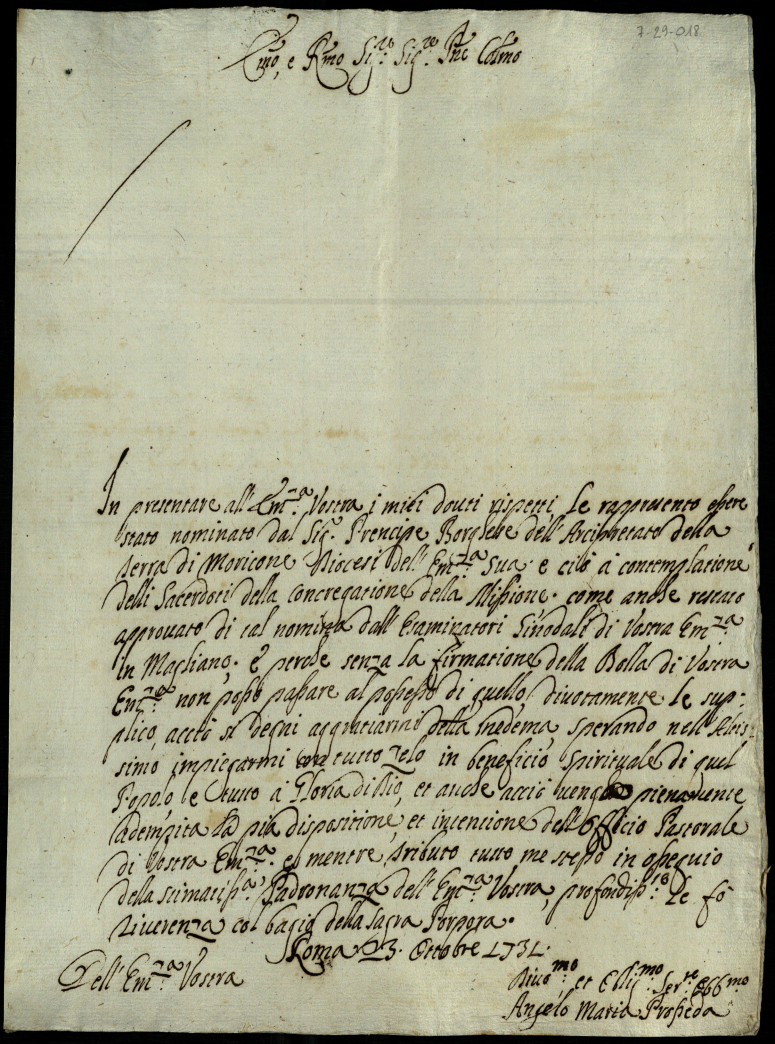 7-29-018
Emo, e Rmo Sig.re Sig.re Pne Colmo
In presentare all'Em.za Vostra i miei douti rispetti Le rappresento essere
stato nominato dal Sig.r Prencipe Borghese dell'Arcipretato della
Terra di Moricone Diocesi dell'Em.za Sua e ciò à contemplatione
delli Sacerdoti della Concregatione della Missione. come anche restato
approuato di tal nomina dall'Esaminatori Sinodali di Vostra Em.za
in Magliano. E perche senza la firmatione della Bolla di Vostra
Em.za non posso passare al possesso di quello, divotamente Le sup=
plico, acciò si degni aggratiarmi della medema, sperando nell'Altis=
simo impiegarmi con tutto zelo in beneficio spirituale di quel
Popolo, e tutto à Gloria di Dio, et anche acciò venga pienamente
adempita la pia dispositione, et intentione dell'Officio Pastorale
di Vostra Em.za e mentre tributo tutto me stesso in ossequio
della stimatiss.a Padronanza dell'Em.za Vostra, profondiss.te Le fò
riuerenza col bagio della Sagra Porpora.
Roma 23. Ottobre 1731.
Dell'Em.za Vostra
Diuo.mo et Ser.re
Angelo Maria Prosseda